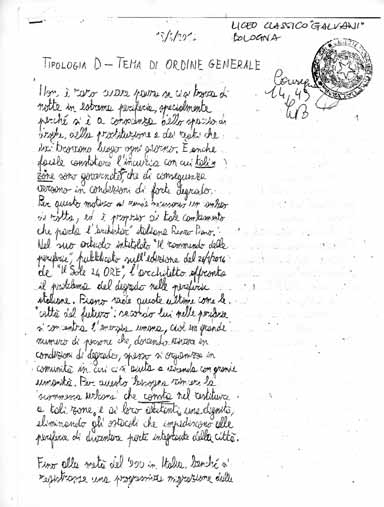 LICEO CLASSICO "GALVANI"
BOLOGNA
TIPOLOGIA D - TEMA DI ORDINE GENERALE
Non è raro avere paura se ci si trova di
notte in estrema periferia, specialmente
perché si è a conoscenza dello spaccio di
droghe, della prostituzione e dei reati che
lì trovano luogo ogni giorno. È anche
facile constatare l'incuria con cui tali
zone sono governate, che di conseguenza
versano in condizioni di forte degrado.
Per questo motivo si rende necessario un
svolta, ed è proprio di tale cambiamento
che parla l'architetto italiano Renzo Piano.
Nel suo articolo intitolato "Il rammendo delle
periferie", pubblicato sull'edizione del
de "Il Sole 24 ORE", l'architetto affronta
il problema del degrado nelle periferie
italiane. Piano vede queste ultime come le
"città del futuro": secondo lui nelle periferie
si concentra l'energia umana, cioè un grande
numero di persone che, dovendo vivere in
condizioni di degrado, spesso si organizza in
comunità in cui ci si aiuta a vicenda con grande
umanità. Per questo bisogna
"scommessa urbana" che consta nel restituire
a tali zone, e ai loro abitanti, una dignità,
eliminando gli ostacoli che impediscono alle
periferie di diventare parte integrante della città.
Fino alla metà del '900 in Italia, benché si
registrasse una progressiva migrazione dalle